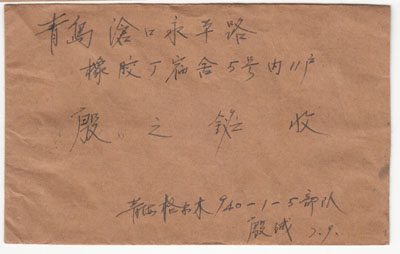 青岛沧口永平路
橡胶丁宿舍5号内11户
殷之 收
青海格尔木940-1-5部队
殷城 2.9.